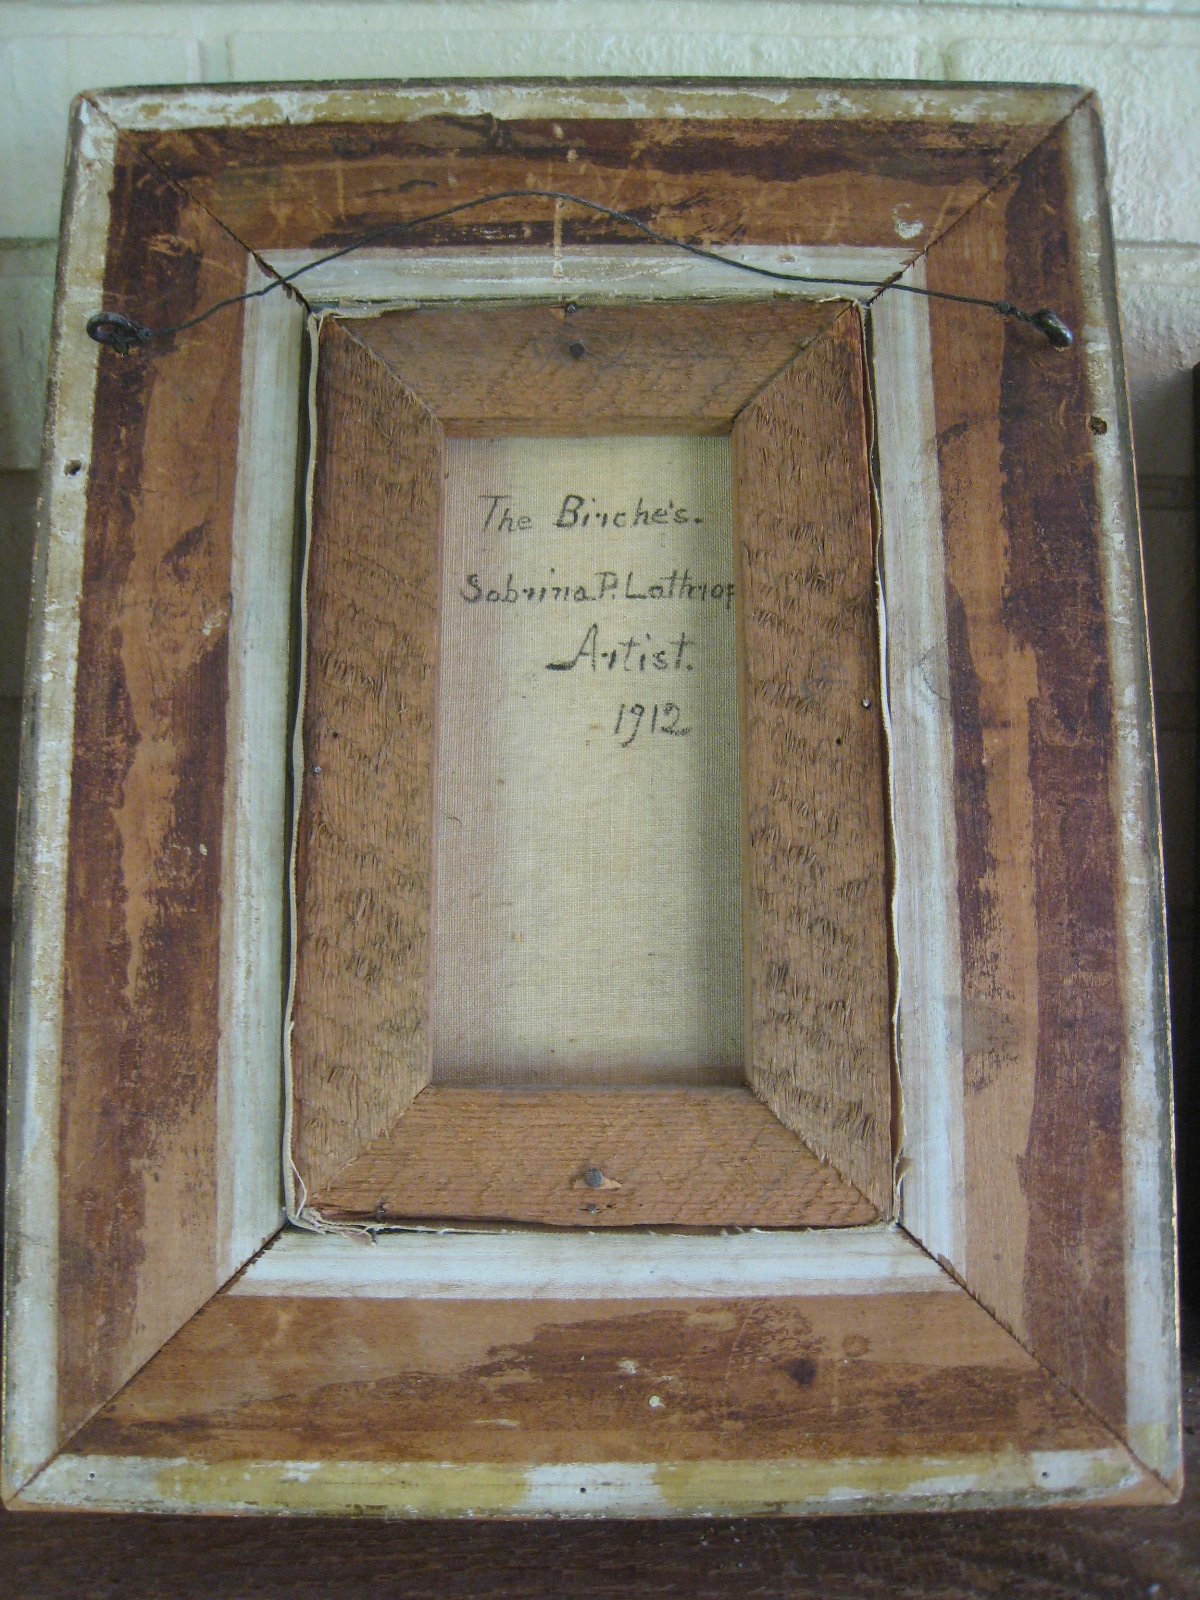 The Birche's.
Sabrina P. Lathrop
Artist.
1912